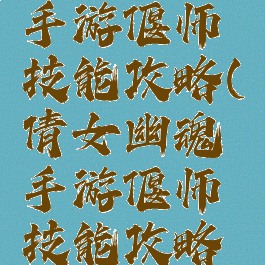 手游偃师
技能攻略(
倩女幽魂
手游偃师
技能攻略